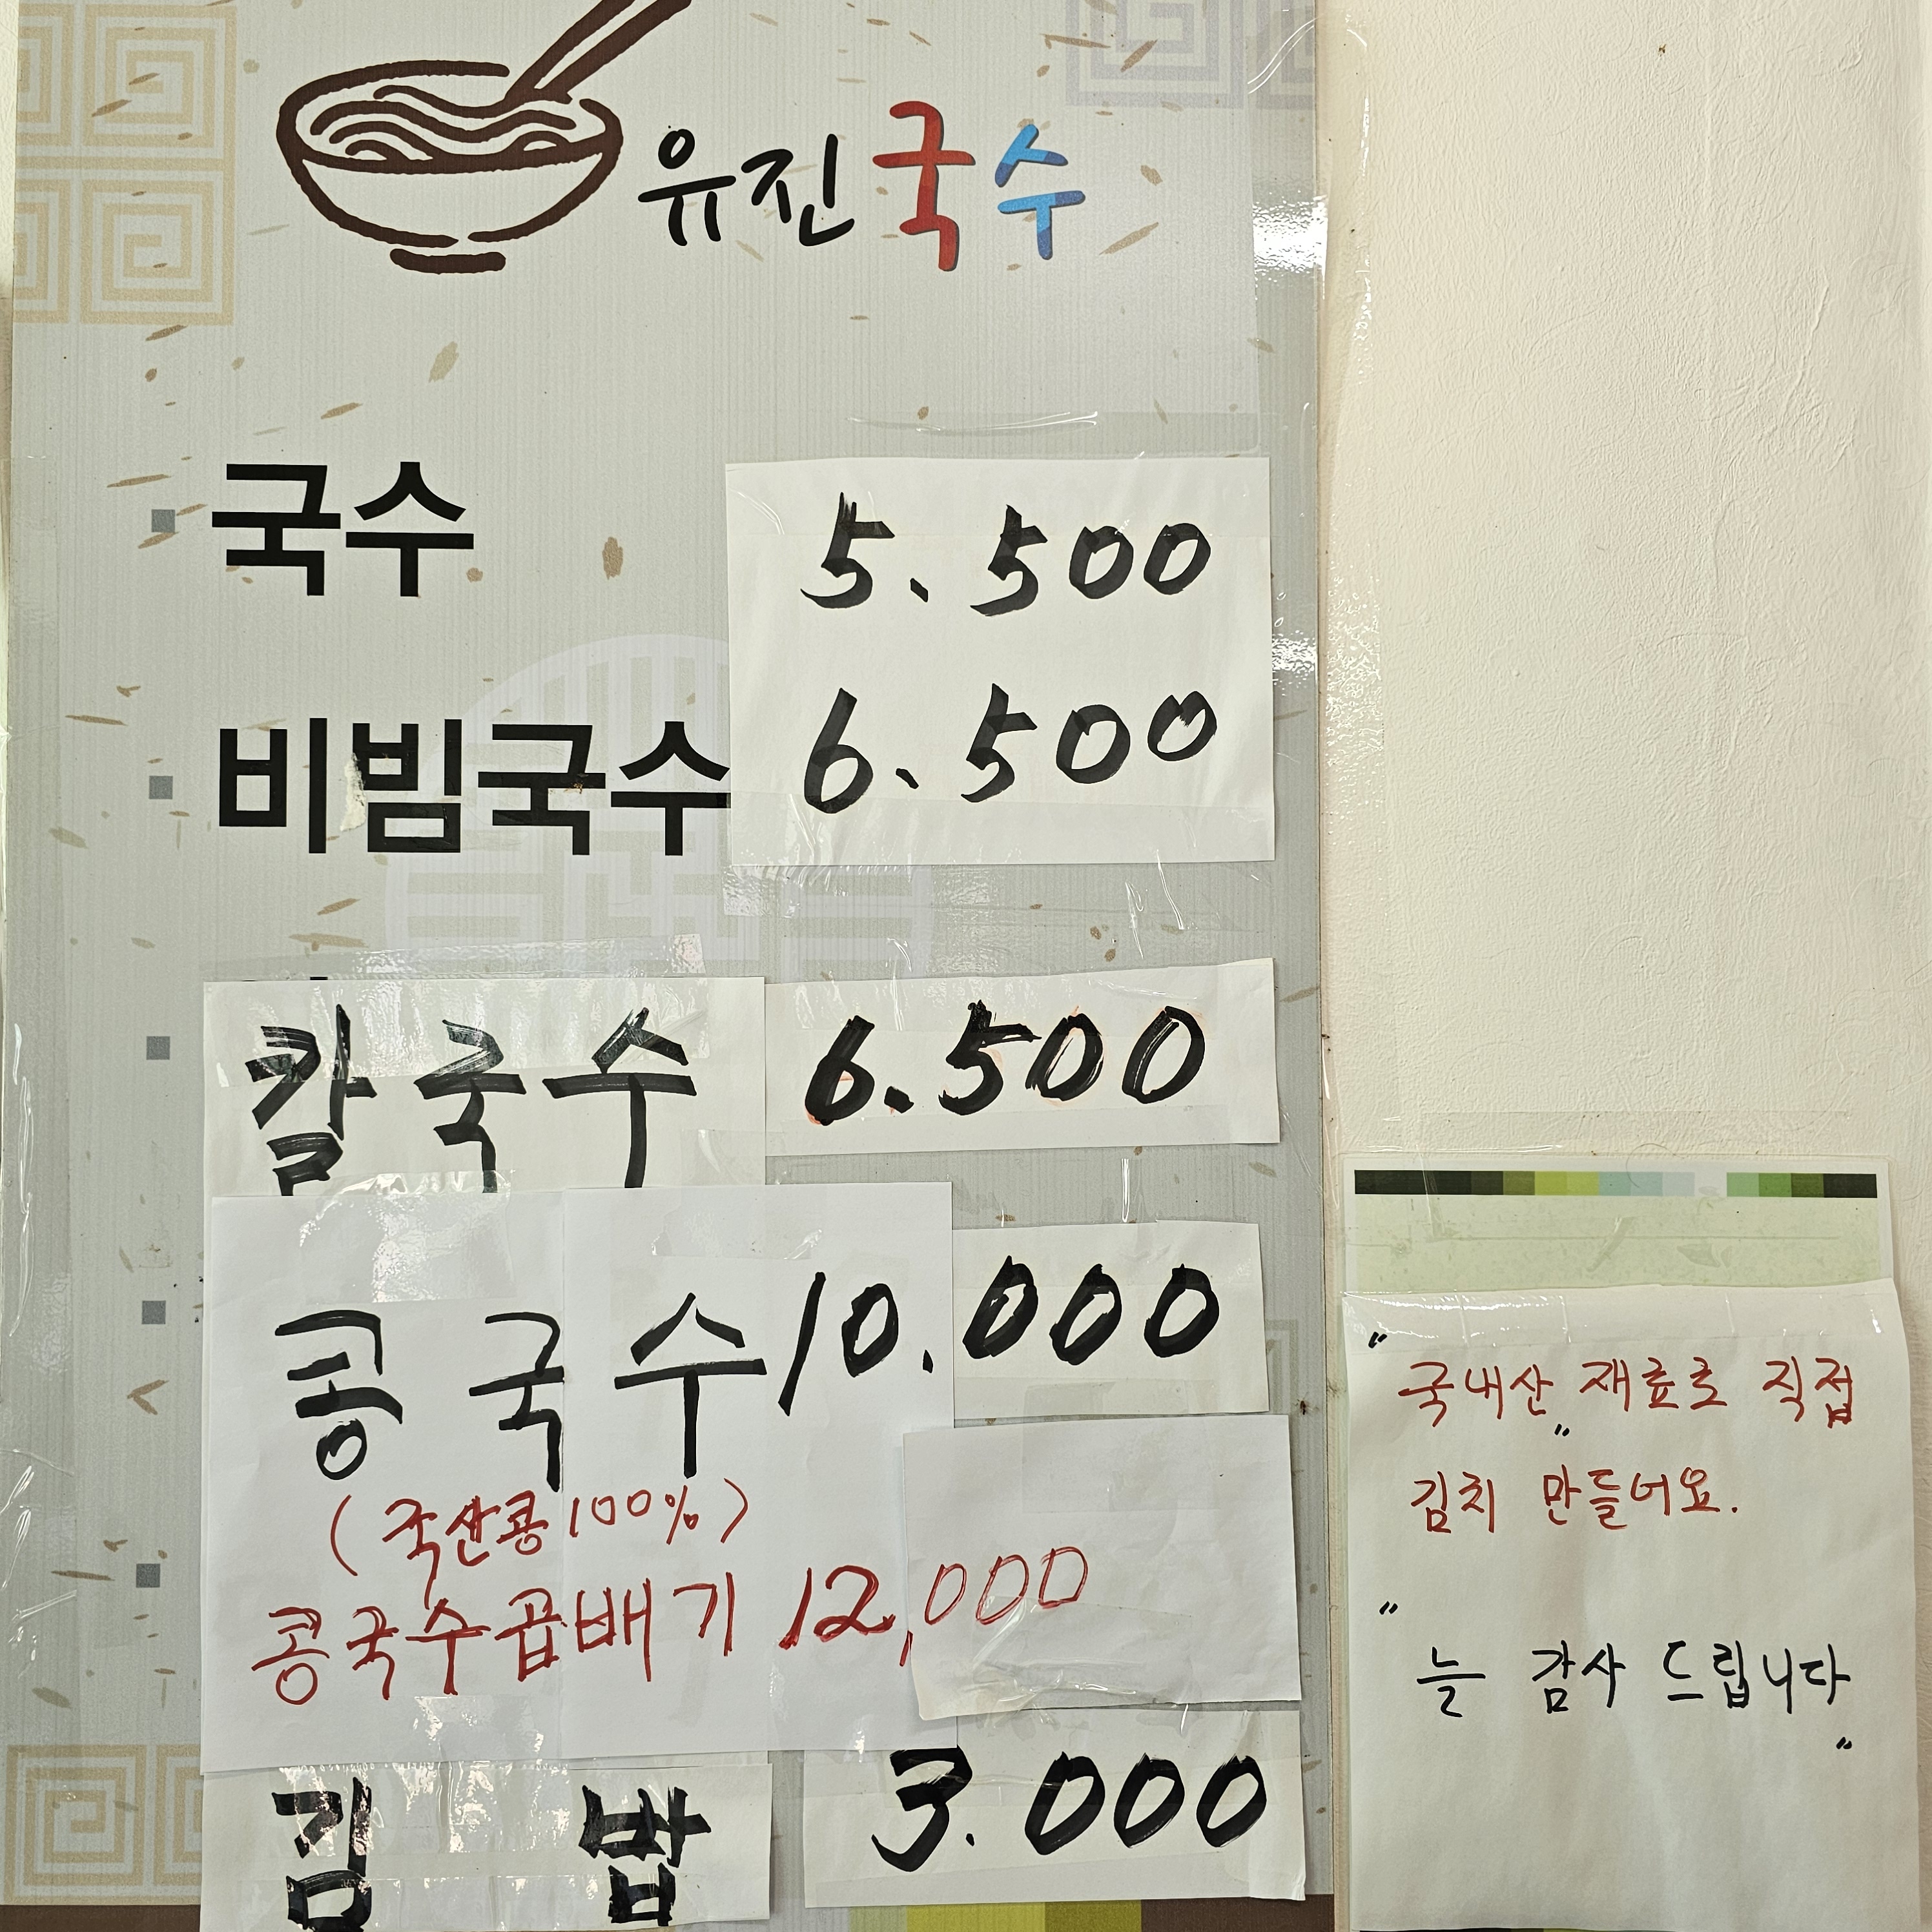 유진국수
국수 5.500
비빔국수 6.500
칼국수 6.500
콩국수 10.000
(국산콩 100%)
콩국수곱배기 12,000
김밥 3.000
"국내산" 재료로 직접
김치 만들어요.
"늘 감사 드립니다"